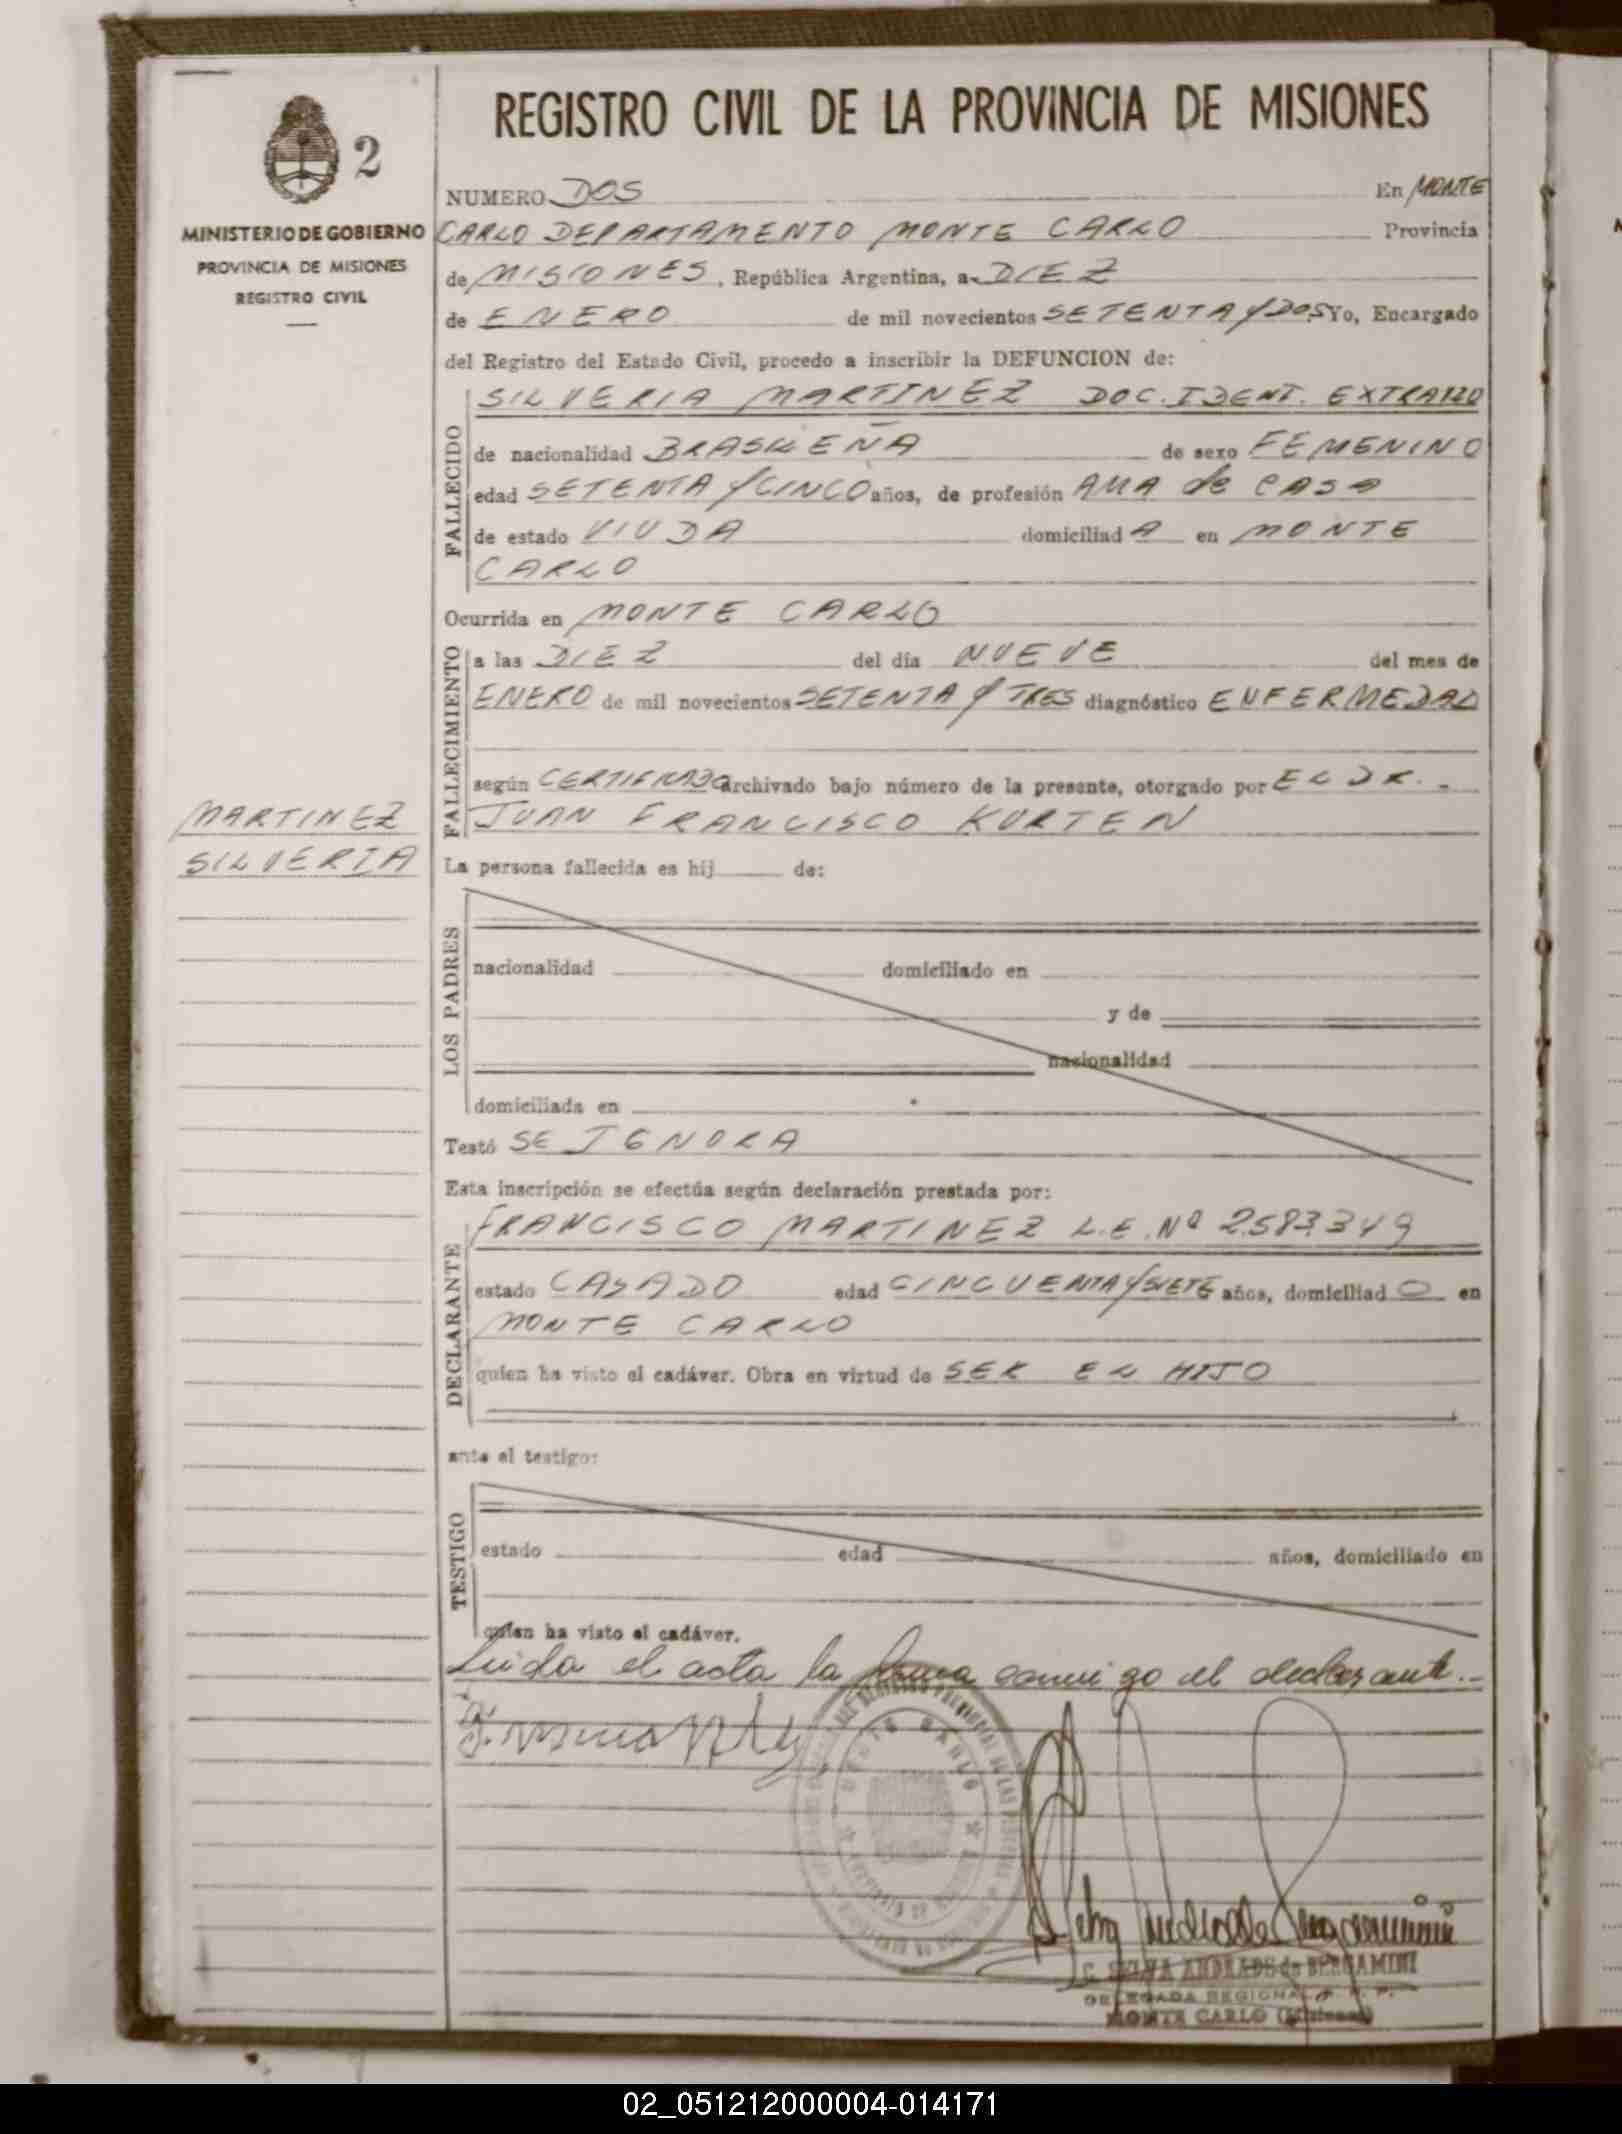 REGISTRO CIVIL DE LA PROVINCIA DE MISIONES
2
MINISTERIO DE GOBIERNO
PROVINCIA DE MISIONES
REGISTRO CIVIL
NUMERO DOS En MONTE
CARLO DEPARTAMENTO MONTE CARLO Provincia
de MISIONES, República Argentina, a DIEZ
de ENERO de mil novecientos SETENTA Y DOS Yo, Encargado
del Registro del Estado Civil, procedo a inscribir la DEFUNCION de:
FALLECIDO
SILVERIA MARTINEZ DOC. IDENT. EXTRAIZO
de nacionalidad BRASILEÑA de sexo FEMENINO
edad SETENTA Y CINCO años, de profesión AMA de CASA
de estado VIUDA domiciliad A en MONTE
CARLO
Ocurrida en MONTE CARLO
FALLECIMIENTO
a las DIEZ del día NUEVE del mes de
ENERO de mil novecientos SETENTA Y TRES diagnóstico ENFERMEDAD
según CERTIFICADO archivado bajo número de la presente, otorgado por EL DR. -
JUAN FRANCISCO KURTEN
MARTINEZ
SILVERIA
La persona fallecida es hij de:
LOS PADRES
nacionalidad domiciliado en
y de
nacionalidad
domiciliada en
Testó SE IGNORA
Esta inscripción se efectúa según declaración prestada por:
DECLARANTE
FRANCISCO MARTINEZ L.E. Nº 2583349
estado CASADO edad CINCUENTA Y SIETE años, domiciliad O en
MONTE CARLO
quien ha visto el cadáver. Obra en virtud de SER EL HIJO
ante el testigo:
TESTIGO
estado edad años, domiciliado en
quien ha visto el cadáver.
Leida el acta la firma conmigo el declarante.-
MONTE CARLO
C. SILVIA ANDRADE de BERGAMINI
DELEGADA REGIONAL R. P. P.
MONTE CARLO (Misiones)
02_051212000004-014171